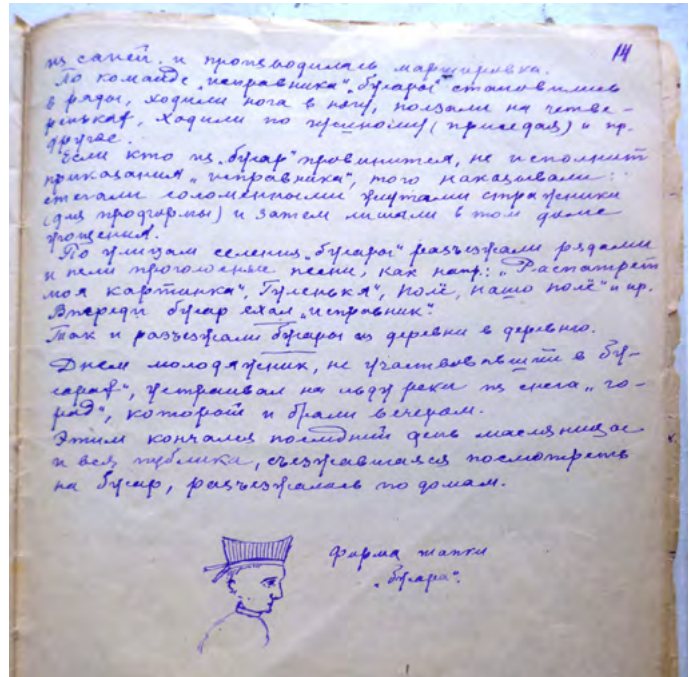 14
из саней и производилась маршировка.
По команде „исправника“ „бухары“ становились
в ряды, ходили нога в ногу, ползали на четве-
реньках, ходили по гусиному (приседая) и пр.
другое.
Если кто из „бухар“ провинится, не исполнит
приказания „исправника“, того наказывали:
стегали соломенными жгутами стражники
(для продгормы) и затем лишали в том доме
угощения.
По улицам селения „бухары“ разъезжали рядами
и пели проголосные песни, как напр.: „Распатрет
моя картинка“, „Гуленькя“, „Полё, нашо полё“ и пр.
Впереди бухар ехал „исправник“.
Так и разъезжали бухары из деревни в деревню.
Днем молодяжник, не участвовавший в бу-
харах, устраивал на льду реки из снега „го-
род“, который и брали вечером.
Этим кончался последний день масляницы
и вся публика, съезжавшаяся посмотреть
на бухар, разъезжалась по домам.
форма шапки
„бухара“.